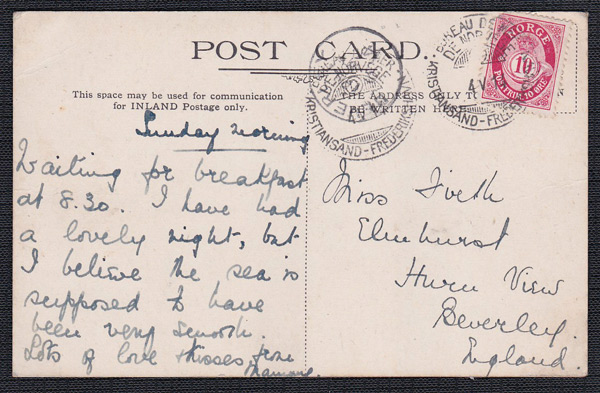 POST CARD.
This space may be used for communication
for INLAND Postage only.
THE ADDRESS ONLY TO
BE WRITTEN HERE
Sunday morning
Waiting for breakfast
at 8.30. I have had
a lovely night, but
I believe the sea is
supposed to have
been very smooth.
Lots of love & kisses from
Miss Firth
Elmhurst
Hurn View
Beverley.
England.
NORGE
10
POSTFRIM. 10 ØRE
KRISTIANSAND-FREDERIKSHAVN
BUREAU DE MER
DE NORVEGE
KRISTIANSAND-FRED